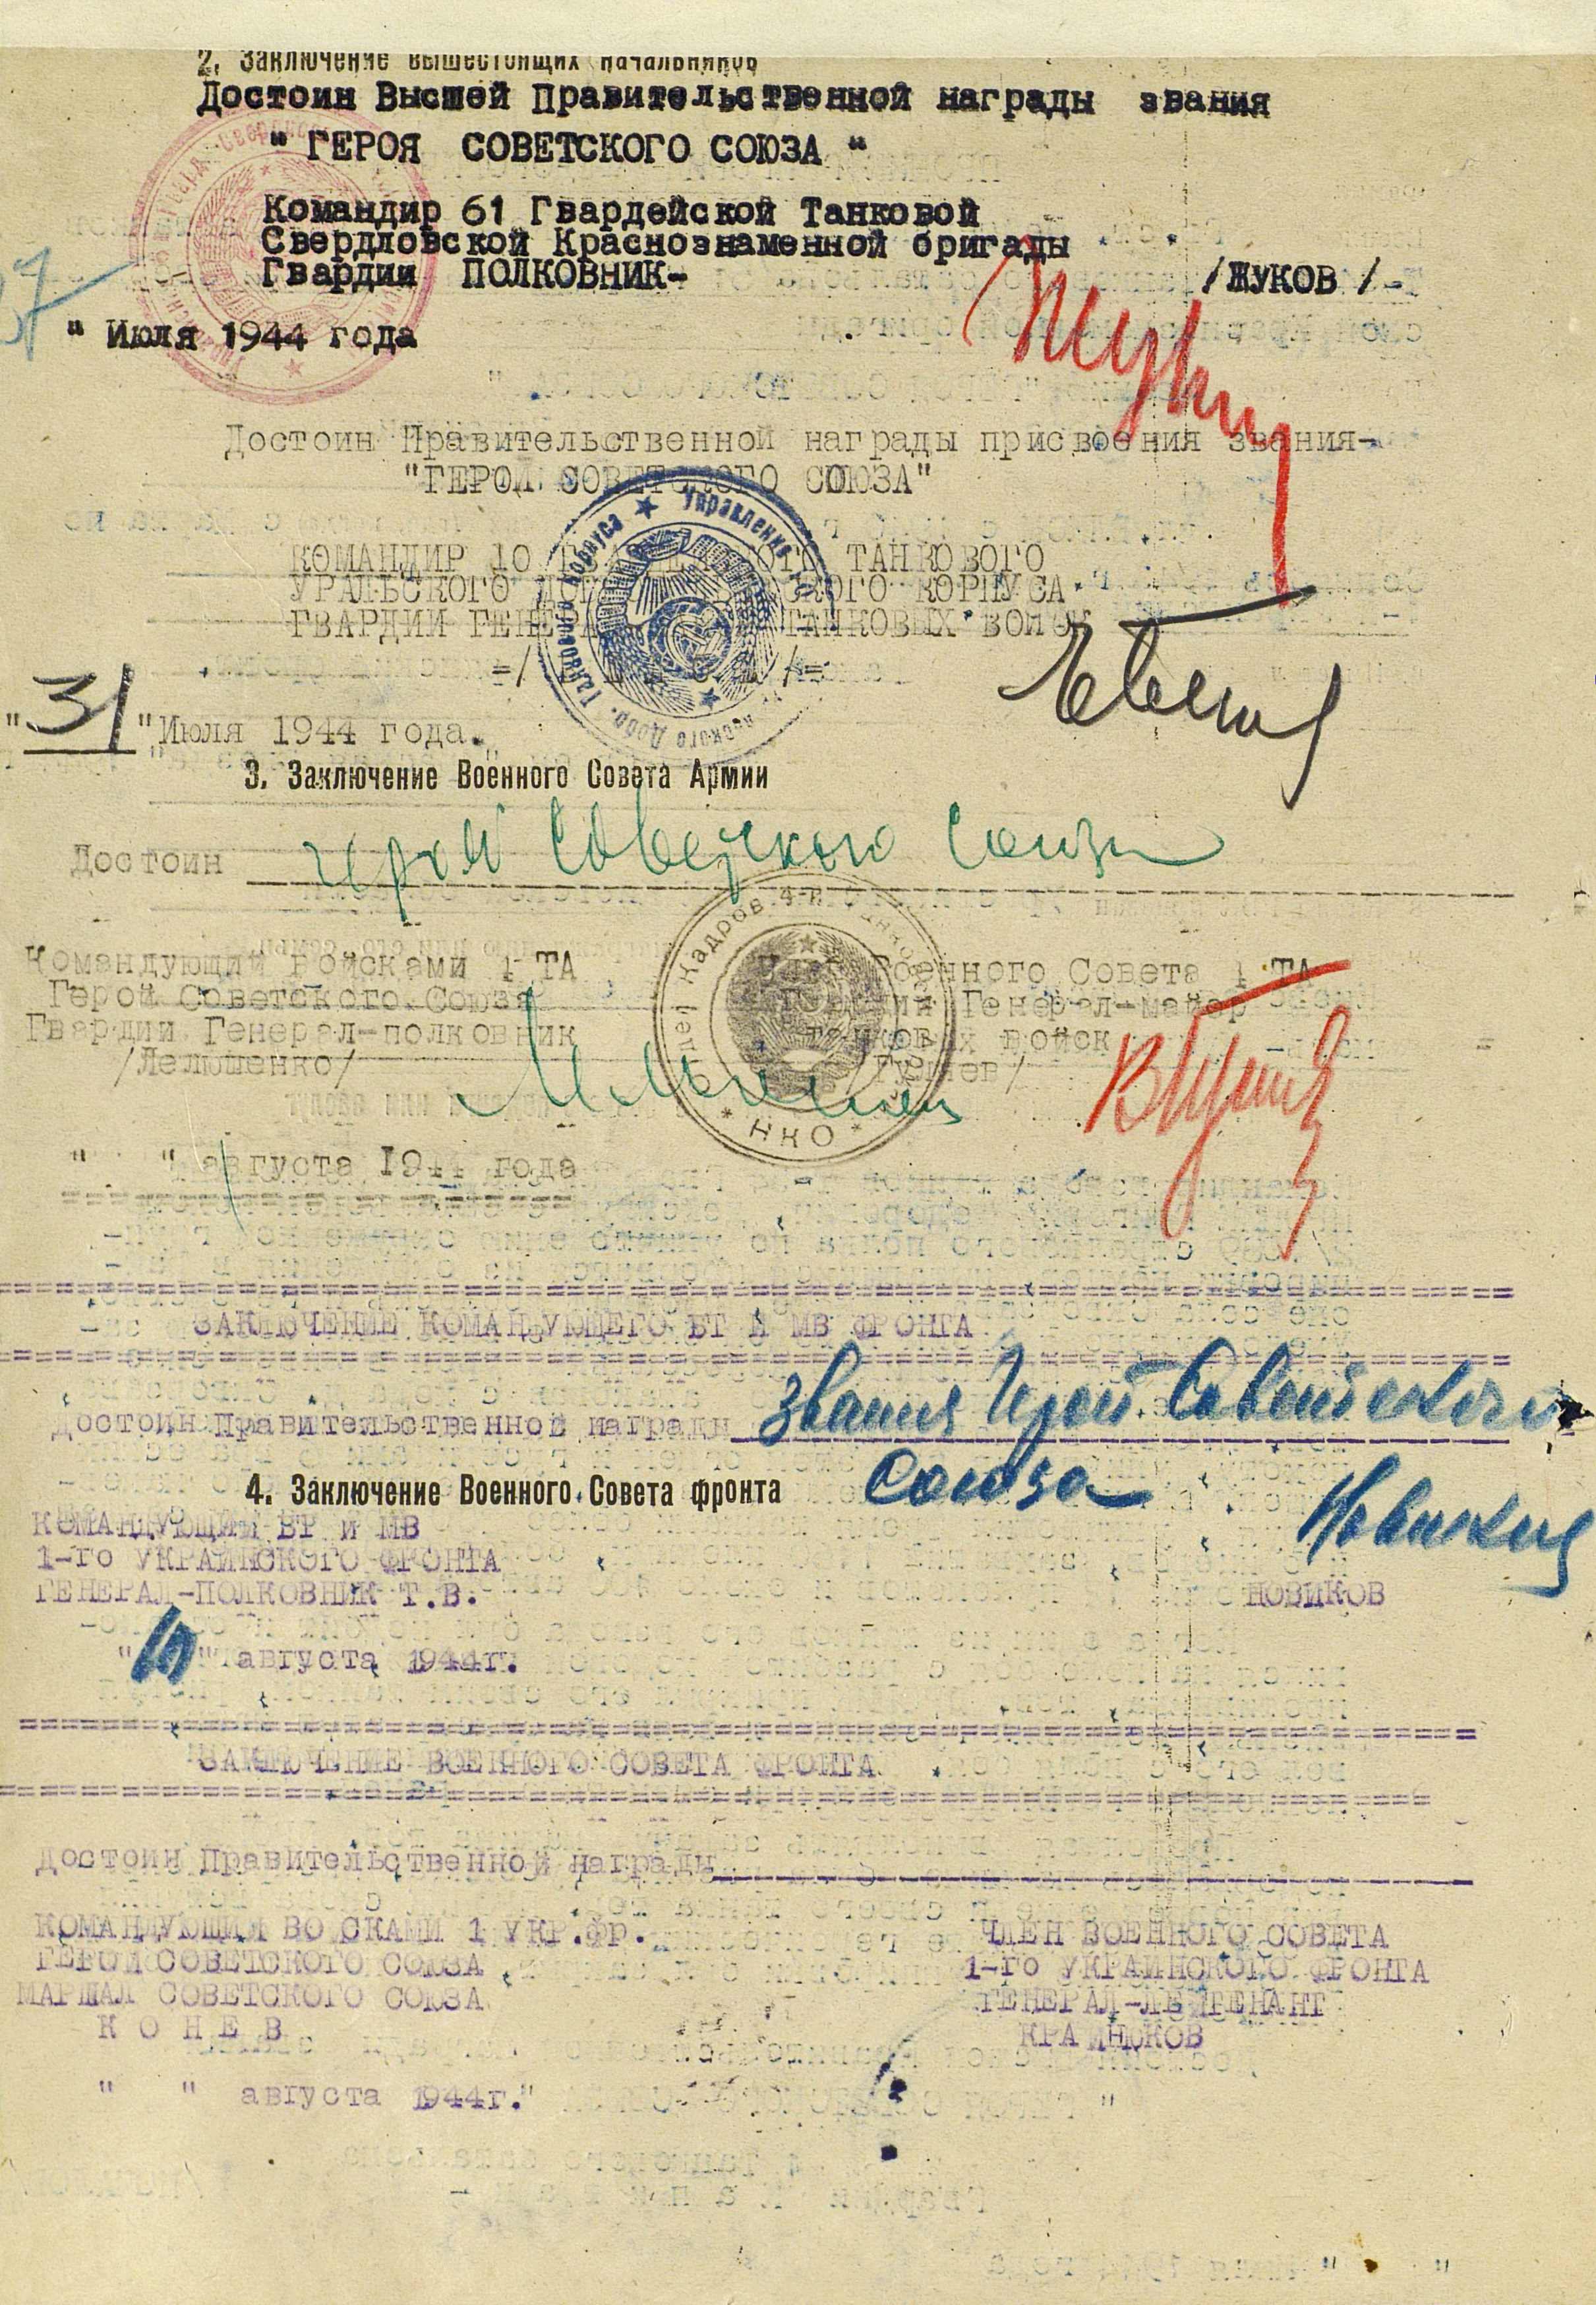 2. Заключение вышестоящих начальников
Достоин Высшей Правительственной награды звания
" ГЕРОЯ СОВЕТСКОГО СОЮЗА "
Командир 61 Гвардейской Танковой
Свердловской Краснознаменной бригады
Гвардии ПОЛКОВНИК- /ЖУКОВ /-
" Июля 1944 года
Достоин Правительственной награды присвоения звания-
"ГЕРОЯ СОВЕТСКОГО СОЮЗА"
КОМАНДИР 10 ТАНКОВОГО
УРАЛЬСКОГО КОРПУСА
ГВАРДИИ ТАНКОВЫХ ВОЙСК
"31" Июля 1944 года.
3. Заключение Военного Совета Армии
Достоин герой Советского Союза
Командующий войсками 4 ТА
Герой Советского Союза
Гвардии Генерал-полковник
/Лелюшенко/
Член Военного Совета 4 ТА
Гвардии Генерал-майор
танковых войск
/Гуляев/
" " августа 1944 года
ЗАКЛЮЧЕНИЕ КОМАНДУЮЩЕГО БТ И МВ ФРОНТА
Достоин Правительственной награды звания Герой Советского
Союза
4. Заключение Военного Совета фронта
КОМАНДУЮЩИЙ БТ И МВ
1-го УКРАИНСКОГО ФРОНТА
ГЕНЕРАЛ-ПОЛКОВНИК Т.В. НОВИКОВ
"10" августа 1944г.
ЗАКЛЮЧЕНИЕ ВОЕННОГО СОВЕТА ФРОНТА
Достоин Правительственной награды
КОМАНДУЮЩИЙ ВОЙСКАМИ 1 УКР.ФР.
ГЕРОЙ СОВЕТСКОГО СОЮЗА
МАРШАЛ СОВЕТСКОГО СОЮЗА
К О Н Е В
ЧЛЕН ВОЕННОГО СОВЕТА
1-го УКРАИНСКОГО ФРОНТА
ГЕНЕРАЛ-ЛЕЙТЕНАНТ
КРАЙНЮКОВ
" " августа 1944г."